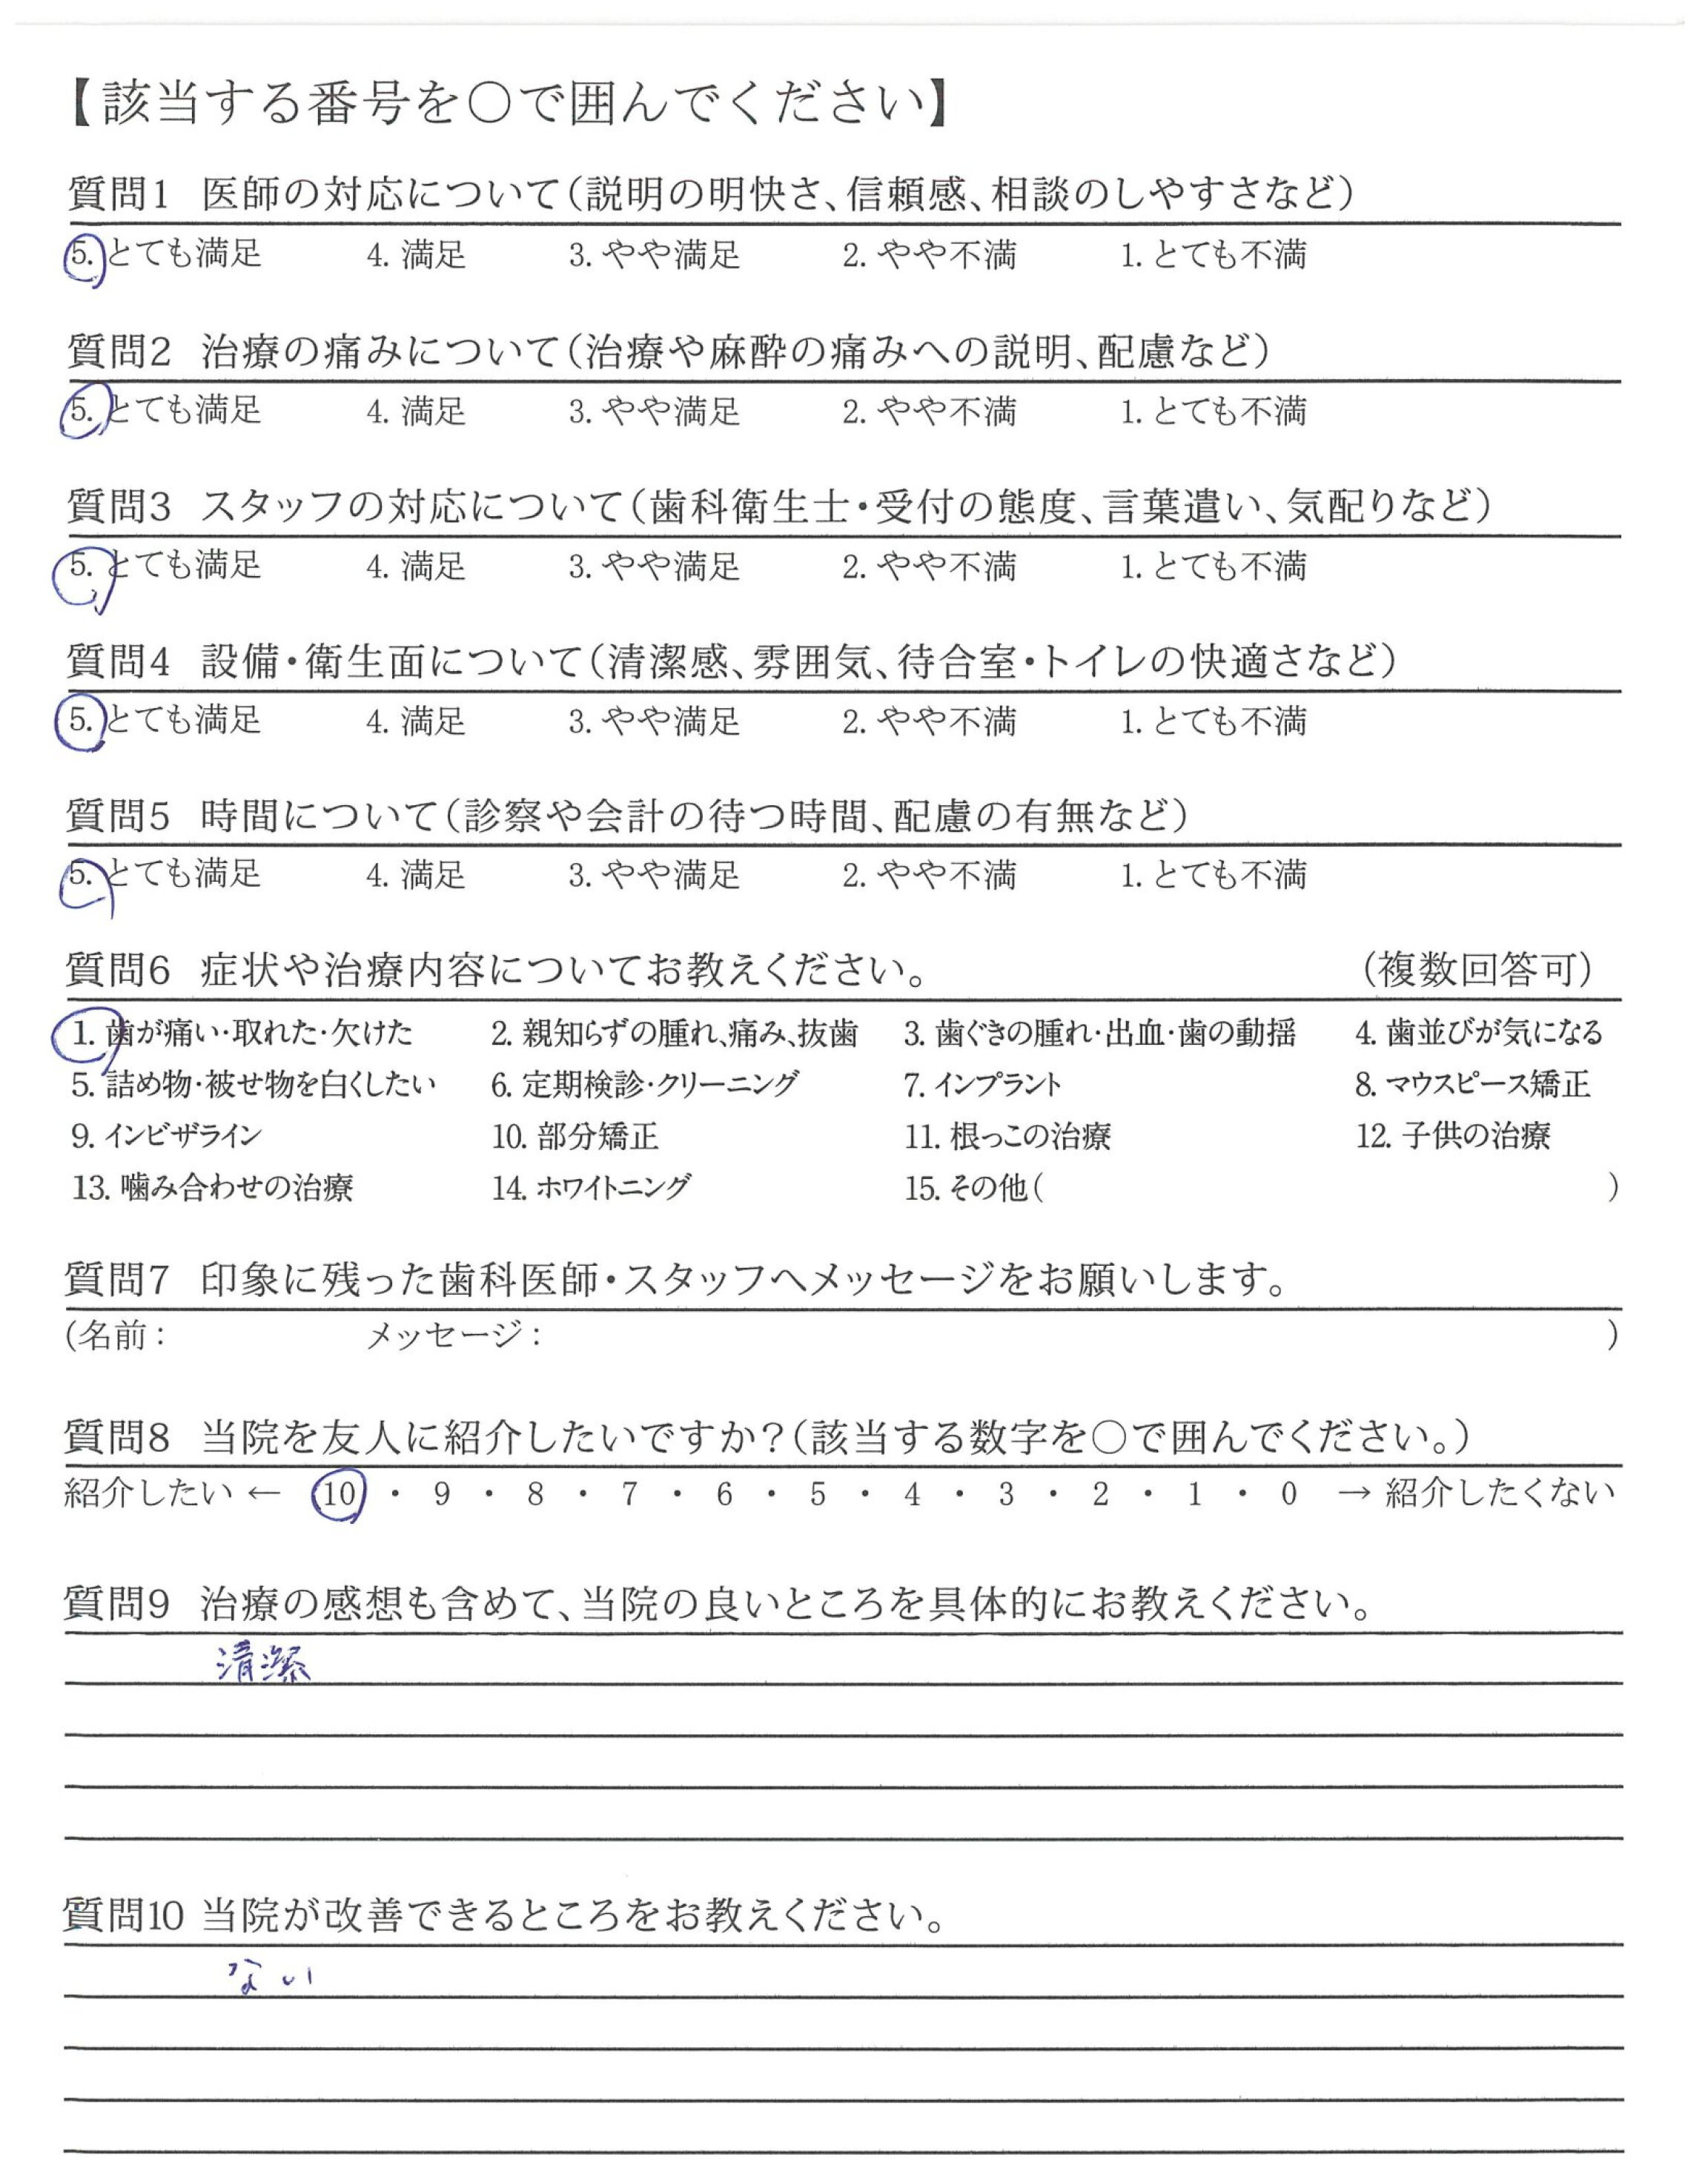 【該当する番号を○で囲んでください】
質問1 医師の対応について(説明の明快さ、信頼感、相談のしやすさなど)
5. とても満足 4. 満足 3. やや満足 2. やや不満 1. とても不満
質問2 治療の痛みについて(治療や麻酔の痛みへの説明、配慮など)
5. とても満足 4. 満足 3. やや満足 2. やや不満 1. とても不満
質問3 スタッフの対応について(歯科衛生士・受付の態度、言葉遣い、気配りなど)
5. とても満足 4. 満足 3. やや満足 2. やや不満 1. とても不満
質問4 設備・衛生面について(清潔感、雰囲気、待合室・トイレの快適さなど)
5. とても満足 4. 満足 3. やや満足 2. やや不満 1. とても不満
質問5 時間について(診察や会計の待つ時間、配慮の有無など)
5. とても満足 4. 満足 3. やや満足 2. やや不満 1. とても不満
質問6 症状や治療内容についてお教えください。 (複数回答可)
1. 歯が痛い・取れた・欠けた 2. 親知らずの腫れ、痛み、抜歯 3. 歯ぐきの腫れ・出血・歯の動揺 4. 歯並びが気になる
5. 詰め物・被せ物を白くしたい 6. 定期検診・クリーニング 7. インプラント 8. マウスピース矯正
9. インビザライン 10. 部分矯正 11. 根っこの治療 12. 子供の治療
13. 噛み合わせの治療 14. ホワイトニング 15. その他( )
質問7 印象に残った歯科医師・スタッフへメッセージをお願いします。
(名前: メッセージ: )
質問8 当院を友人に紹介したいですか?(該当する数字を○で囲んでください。)
紹介したい ← 10 ・ 9 ・ 8 ・ 7 ・ 6 ・ 5 ・ 4 ・ 3 ・ 2 ・ 1 ・ 0 → 紹介したくない
質問9 治療の感想も含めて、当院の良いところを具体的にお教えください。
清潔
質問10 当院が改善できるところをお教えください。
ない